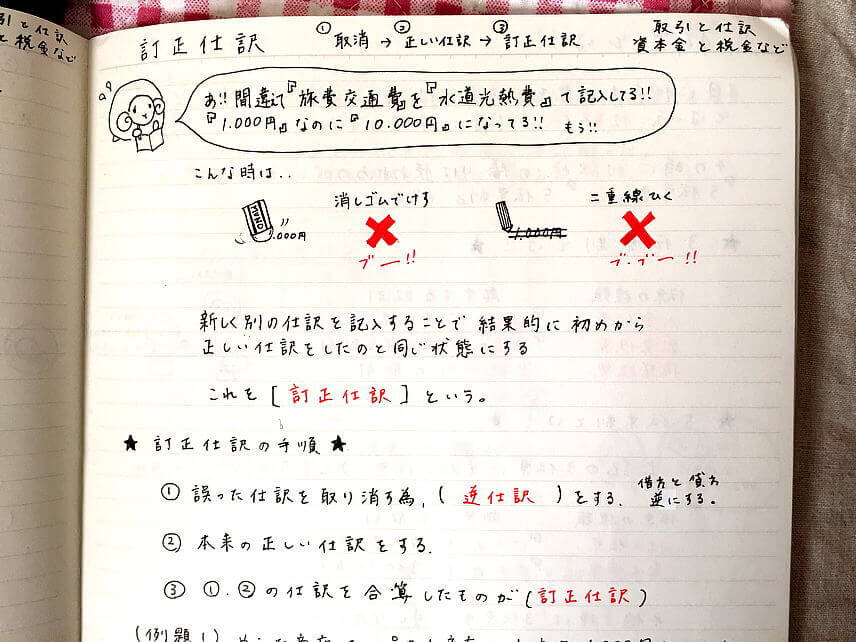 訂正仕訳
① ② ③
取消 → 正しい仕訳 → 訂正仕訳
取引と仕訳
資本金と税金など
取引と仕訳
と税金など
あ!! 間違えて『旅費交通費』を『水道光熱費』で記入してる!!
『1.000円』なのに『10.000円』になってる!! もう!!
こんな時は..
消しゴムでけす
二重線ひく
.000円
1.000円
ブー!!
ブ・ブー!!
新しく別の仕訳を記入することで結果的に初めから
正しい仕訳をしたのと同じ状態にする
これを [訂正仕訳] という。
★ 訂正仕訳の手順 ★
① 誤った仕訳を取り消す為, (逆仕訳) をする. 借方と貸方
逆にする。
② 本来の正しい仕訳をする.
③ ①.②の仕訳を合算したものが (訂正仕訳)
(例題1)